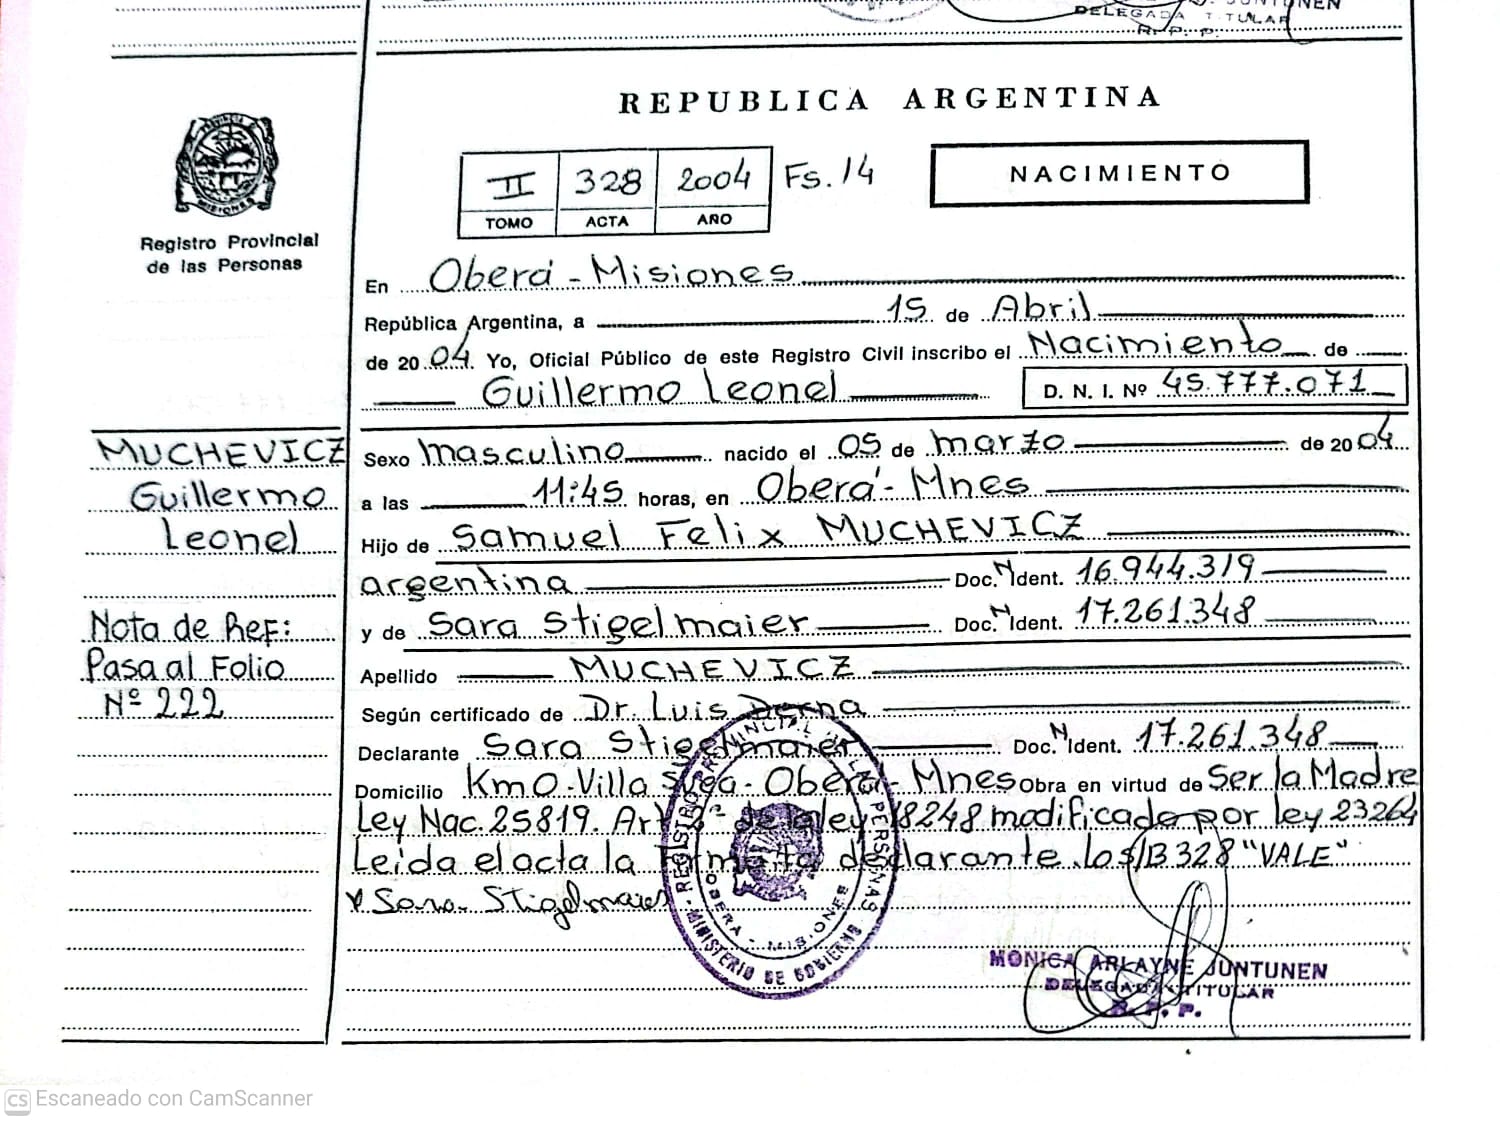 JUNTUNEN
DELEGADA TITULAR
R. P. P.
REPUBLICA ARGENTINA
PROVINCIA DE MISIONES
Registro Provincial
de las Personas
II 328 2004 Fs. 14
TOMO ACTA AÑO
NACIMIENTO
En Oberá - Misiones
República Argentina, a 15 de Abril
de 2004. Yo, Oficial Público de este Registro Civil inscribo el Nacimiento de
Guillermo Leonel D. N. I. Nº 45.777.071
MUCHEVICZ
Guillermo
Leonel
Nota de Ref:
Pasa al Folio
Nº 222
Sexo masculino nacido el 05 de marzo de 2004
a las 11:45 horas, en Oberá - Mnes
Hijo de Samuel Felix MUCHEVICZ
argentina Doc. N Ident. 16.944.319
y de Sara Stigelmaier Doc. N Ident. 17.261.348
Apellido MUCHEVICZ
Según certificado de Dr. Luis Derna
Declarante Sara Stigelmaier Doc. N Ident. 17.261.348
Domicilio Km0-Villa - Oberá - Mnes Obra en virtud de Ser la Madre
Ley Nac. 25819. Art 2º de la ley 18248 modificada por ley 23264
Leída el acta la Firmata declarante. Los/B 328 "VALE"
Sara Stigelmaier
REGISTRO PROVINCIAL DE LAS PERSONAS
OBERA - MISIONES
MINISTERIO DE GOBIERNO
MONICA ARLAYNE JUNTUNEN
DELEGADA TITULAR
R. P. P.
CS Escaneado con CamScanner